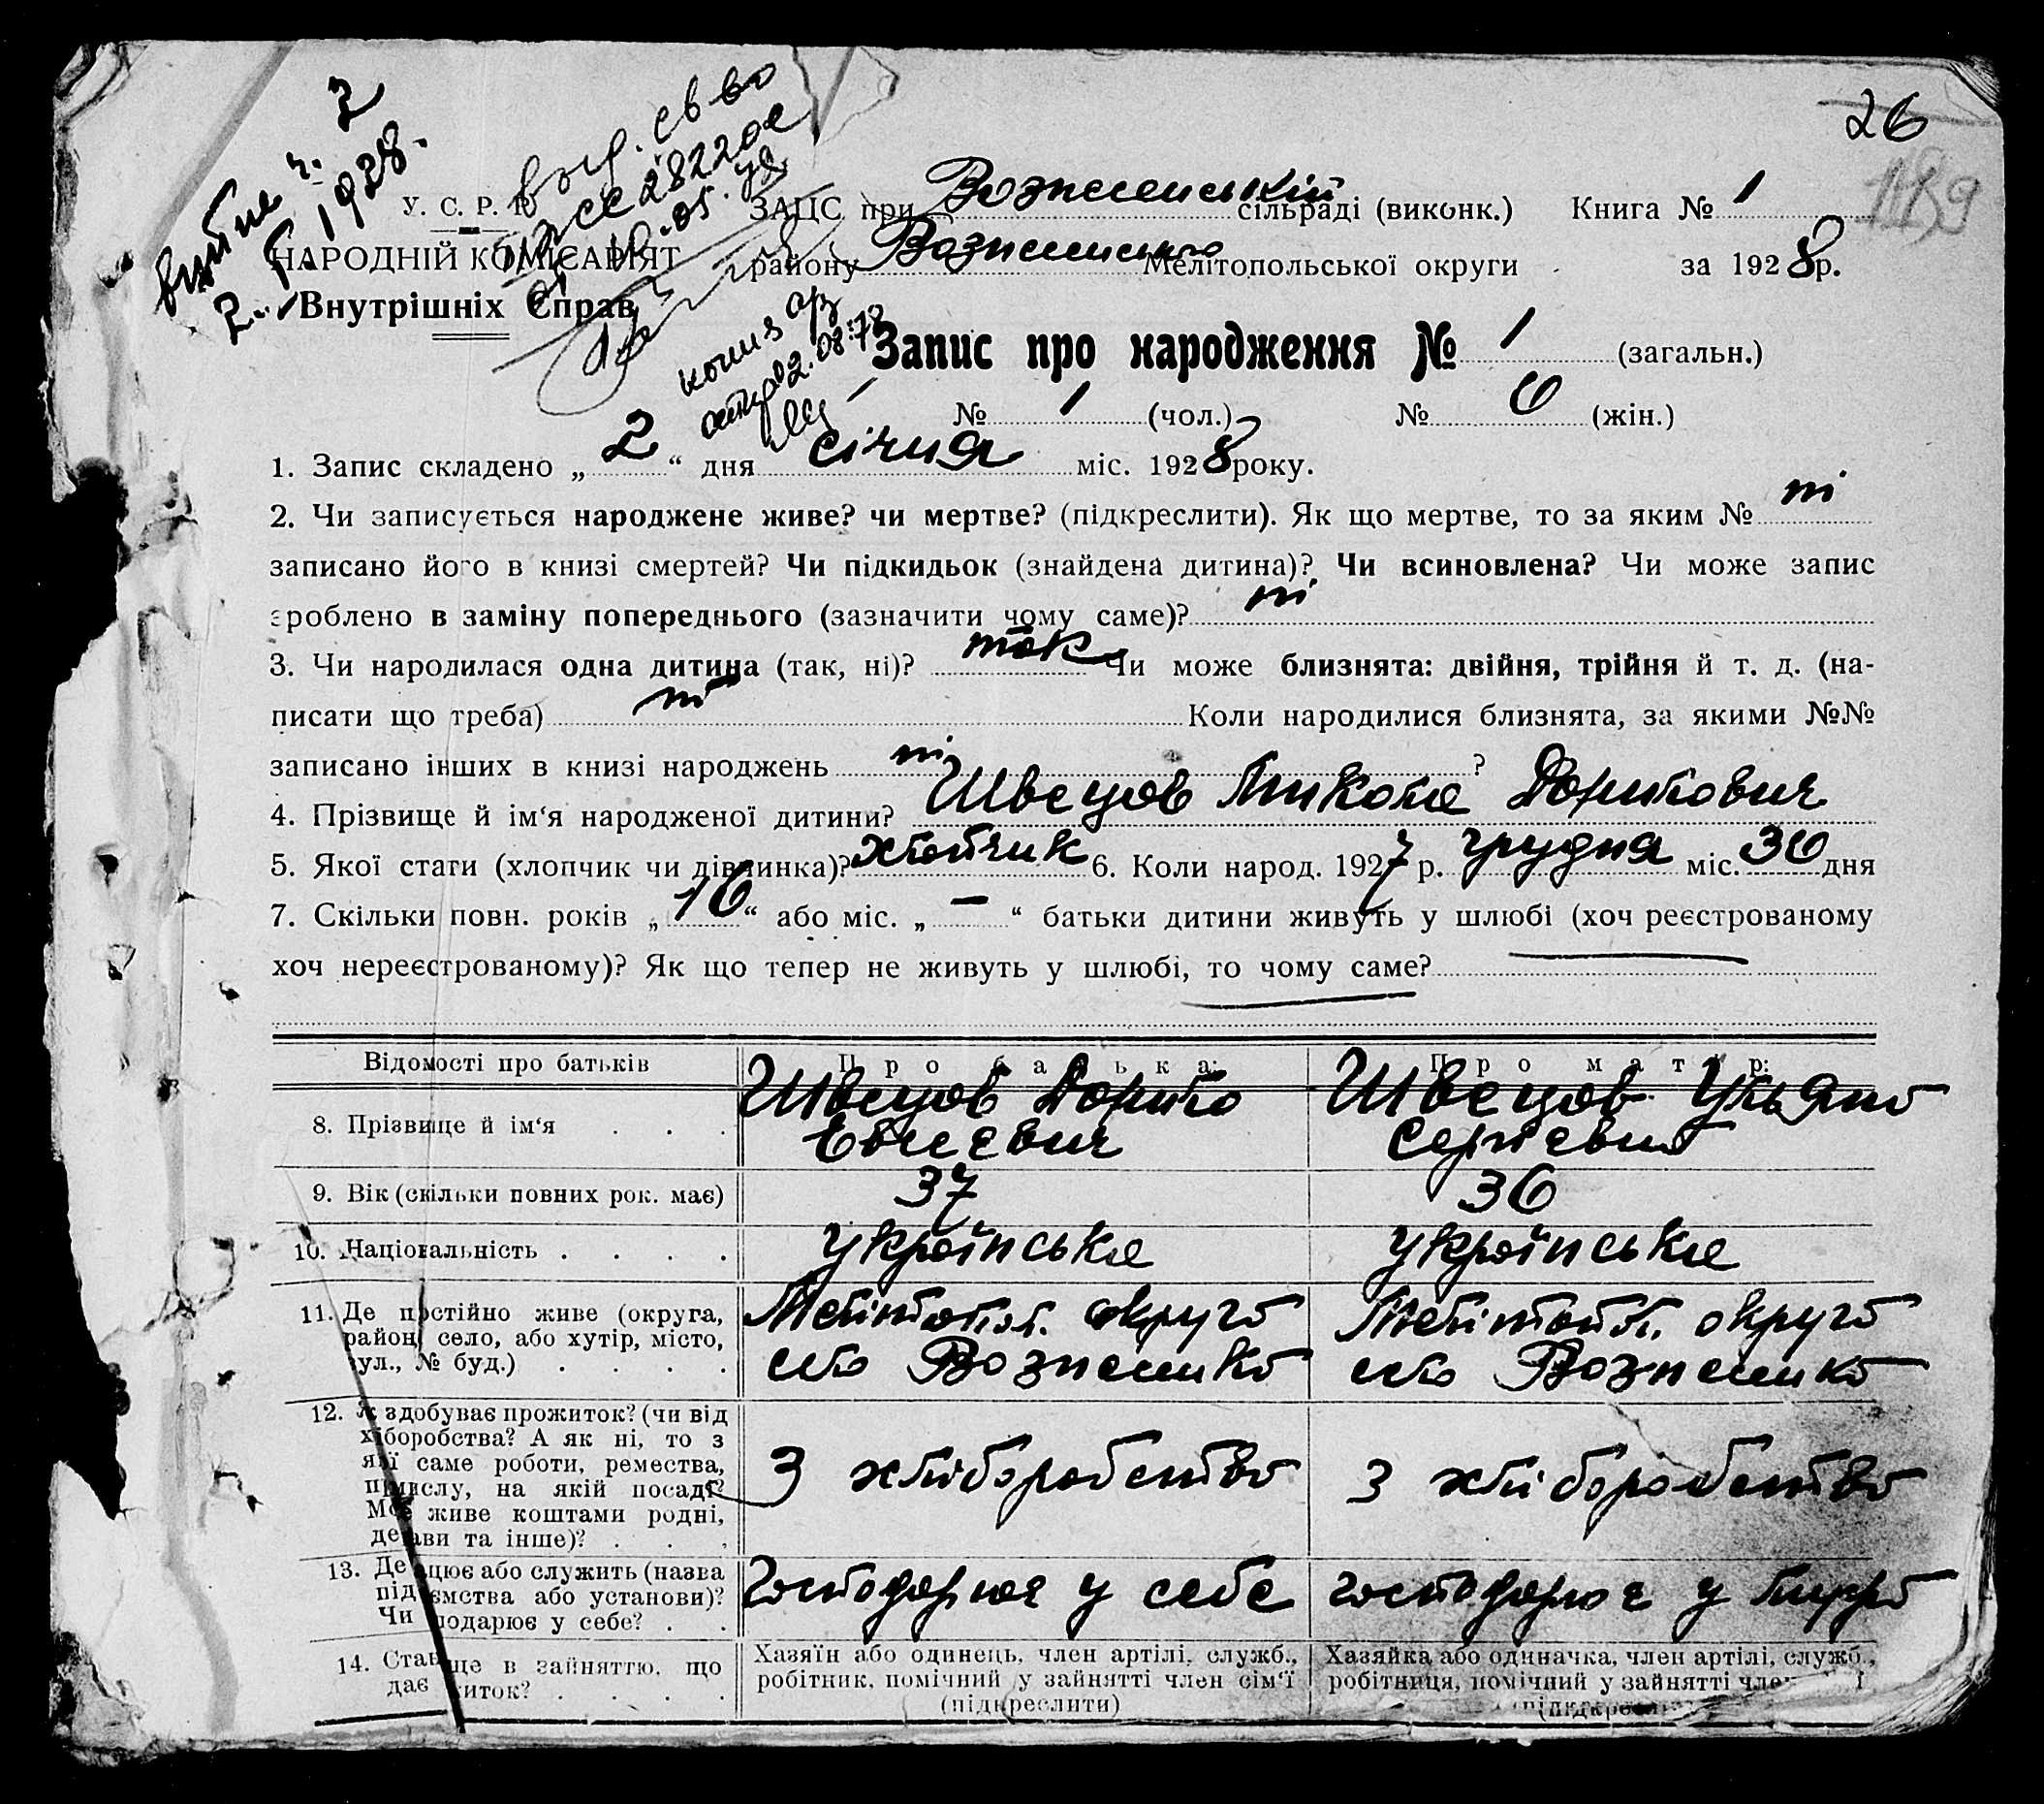 26
119
У. С. Р. Р.
НАРОДНІЙ КОМІСАРІЯТ
Внутрішніх Справ
2 1928.
ЗАЦС при Вознесенській сільраді (виконк.) Книга № 1
району Вознесенського Мелітопольської округи за 1928 р.
копия
02.08.78
Запис про народження № 1 (загальн.)
№ 1 (чол.) № 0 (жін.)
1. Запис складено „ 2 “ дня січня міс. 1928 року.
2. Чи записується народжене живе? чи мертве? (підкреслити). Як що мертве, то за яким № ні
записано його в книзі смертей? Чи підкидьок (знайдена дитина)? Чи всиновлена? Чи може запис
зроблено в заміну попереднього (зазначити чому саме)? ні
3. Чи народилася одна дитина (так, ні)? так Чи може близнята: двійня, трійня й т. д. (на-
писати що треба) ні Коли народилися близнята, за якими №№
записано інших в книзі народжень ні ?
4. Прізвище й ім‘я народженої дитини? Швецов Микола
5. Якої стати (хлопчик чи дівчинка)? хлопчик 6. Коли народ. 1927 р. грудня міс. 30 дня
7. Скільки повн. років „ 16 “ або міс. „ — “ батьки дитини живуть у шлюбі (хоч реєстрованому
хоч нереєстрованому)? Як що тепер не живуть у шлюбі, то чому саме?
Відомості про батьків Про батька: Про матір:
8. Прізвище й ім‘я . . . Швецов Швецов Ульяна
Евсеевич Сергіевна
9. Вік (скільки повних рок. має) 37 36
10. Національність . . . . українська українська
11. Де постійно живе (округа, район, село, або хутір, місто, вул., № буд.) . . . .
Мелітопол. округа Мелітопол. округа
село Вознесенка село Вознесенка
12. Як здобуває прожиток? (чи від
хліборобства? А як ні, то з
якої саме роботи, ремества,
промислу, на якій посаді?
Може живе коштами родні,
держави та інше)? . . .
З хліборобства З хліборобства
13. Де працює або служить (назва
підприємства або установи)?
Чи господарює у себе? . .
господарює у себе господарює у
14. Становище в зайняттю, що
дає прожиток? . . . .
Хазяїн або одинець, член артілі, служб.,
робітник, помічний у зайнятті член сім‘ї
(підкреслити)
Хазяйка або одиначка, член артілі, служб.,
робітниця, помічний у зайнятті